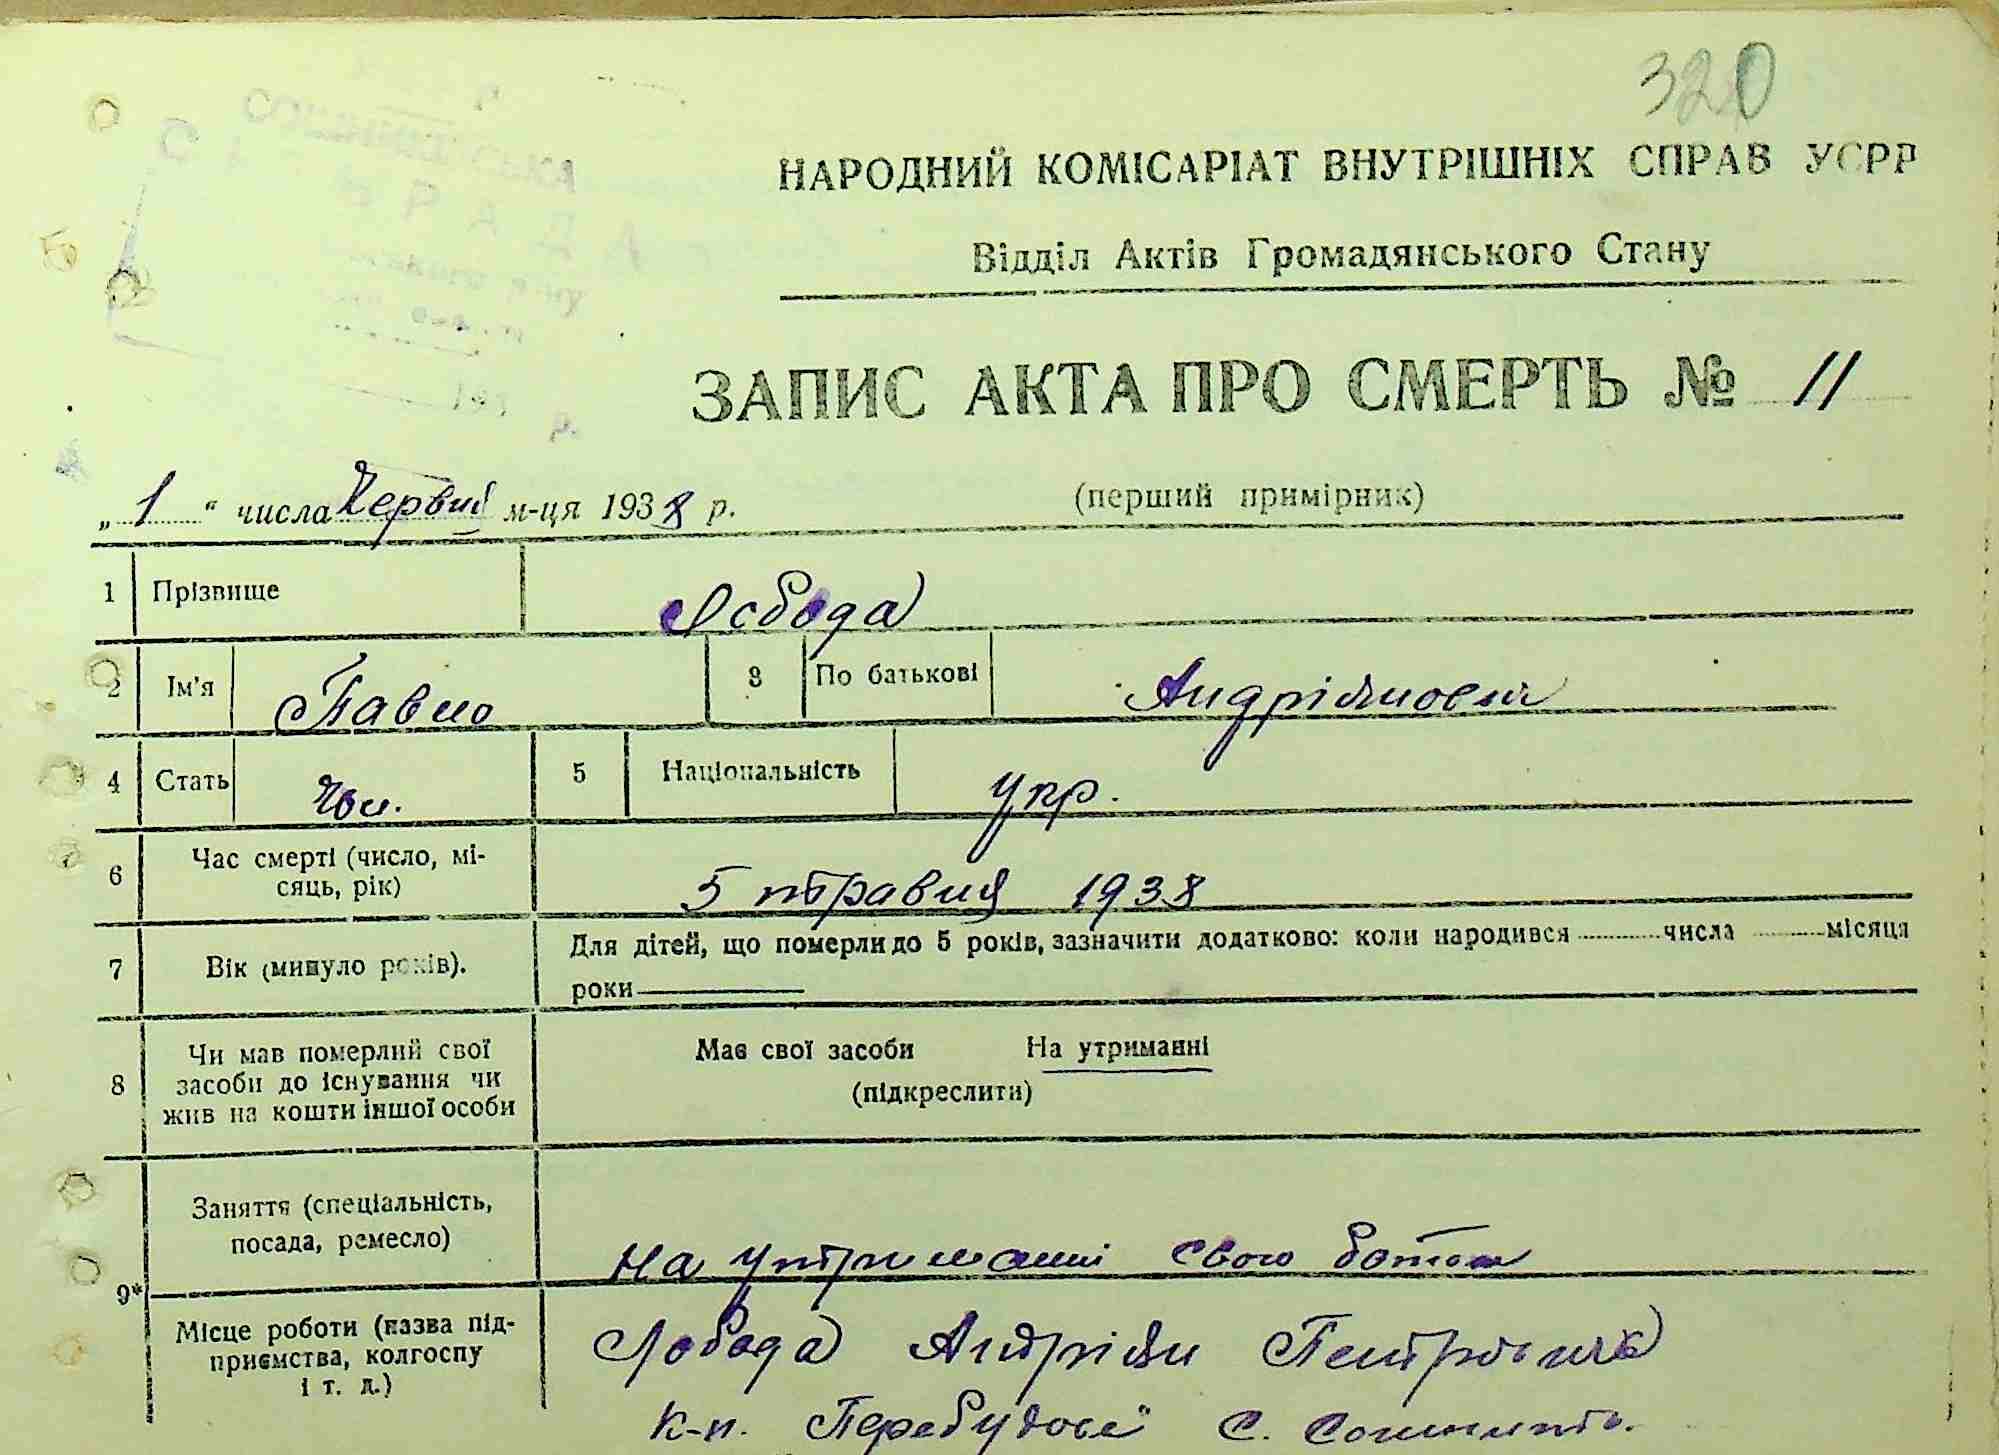 320
НАРОДНИЙ КОМІСАРІАТ ВНУТРІШНІХ СПРАВ УСРР
Відділ Актів Громадянського Стану
ЗАПИС АКТА ПРО СМЕРТЬ № 11
(перший примірник)
„ 1 “ числа Червня м-ця 1938 р.
1 Прізвище Лобода
2 Ім'я Павло 3 По батькові Андріянович
4 Стать чол. 5 Національність укр.
6 Час смерті (число, мі-
сяць, рік) 5 травня 1938
7 Вік (минуло років). Для дітей, що померли до 5 років, зазначити додатково: коли народився числа місяця
роки
8 Чи мав померлий свої
засоби до існування чи
жив на кошти іншої особи
Має свої засоби На утриманні
(підкреслити)
9* Заняття (спеціальність,
посада, ремесло) На утриманні свого
Місце роботи (назва під-
приємства, колгоспу
і т. д.)
Лобода Андріян Петрович
к-п. С.